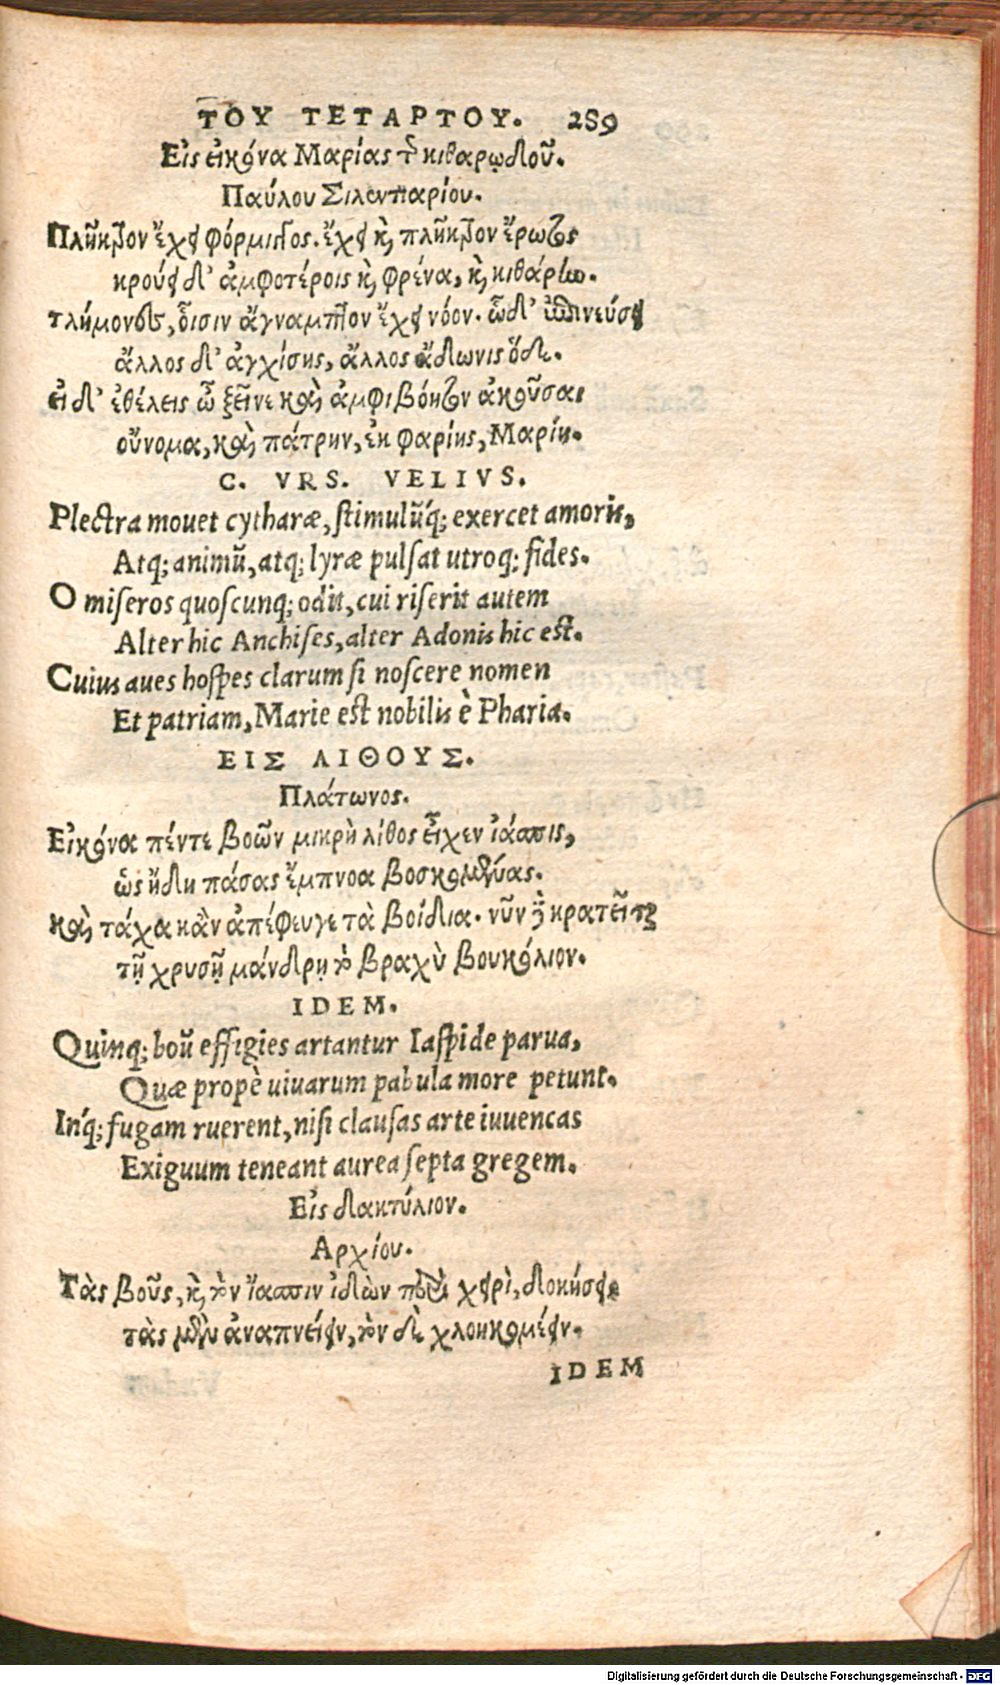 ΤΟΥ ΤΕΤΑΡΤΟΥ. 289
Εἰς εἰκόνα Μαρίας τ͂ κιθαρῳδοῦ.
Παύλου Σιλεντιαρίου.
Πλῆκτρον ἔχει φόρμιγγος. ἔχει κ̀, πλῆκτρον ἔρωτος
κρούει δ' ἀμφοτέροις κ̀, φρένα, κ̀, κιθάρην.
τλήμονες, οἷσιν ἄγναμπτον ἔχει νόον. ᾧ δ' ἐπινεύσει
ἄλλος δ' ἀγχίσης, ἄλλος ἄδωνις ὅδε.
εἰ δ' ἐθέλεις ὦ ξεῖνε καὶ ἀμφιβόητον ἀκοῦσαι
οὔνομα, καὶ πάτρην, ἐκ φαρίης, Μαρίη.
C. VRS. VELIVS.
Plectra mouet cytharæ, stimulũq́; exercet amoris,
Atq; animũ, atq; lyræ pulsat utroq; fides.
O miseros quoscunq; odit, cui riserit autem
Alter hic Anchises, alter Adonis hic est.
Cuius aues hospes clarum si noscere nomen
Et patriam, Marie est nobilis è Pharia.
ΕΙΣ ΛΙΘΟΥΣ.
Πλάτωνος.
Εἰκόνα πέντε βοῶν μικρὴ λίθος εἶχεν ἰάσπις,
ὡς ἤδη πάσας ἔμπνοα βοσκομένας.
καὶ τάχα κἂν ἀπέφευγε τὰ βοίδια. νῦν ϳ̀ κρατεῖται
τῇ χρυσῇ μάνδρῃ τὸ βραχὺ βουκόλιον.
IDEM.
Quinq; boũ effigies artantur Iaspide parua,
Quæ propè uiuarum pabula more petunt.
Inq́; fugam ruerent, nisi clausas arte iuuencas
Exiguum teneant aurea septa gregem.
Εἰς δακτύλιον.
Αρχίου.
Τὰς βοῦς, κ̀, τὸν ἴασπιν ἰδὼν περὶ χειρὶ, δοκήσεις
τὰς μὲν ἀναπνείειν, τὸν δὲ χλοηκομέειν.
IDEM
Digitalisierung gefördert durch die Deutsche Forschungsgemeinschaft - DFG